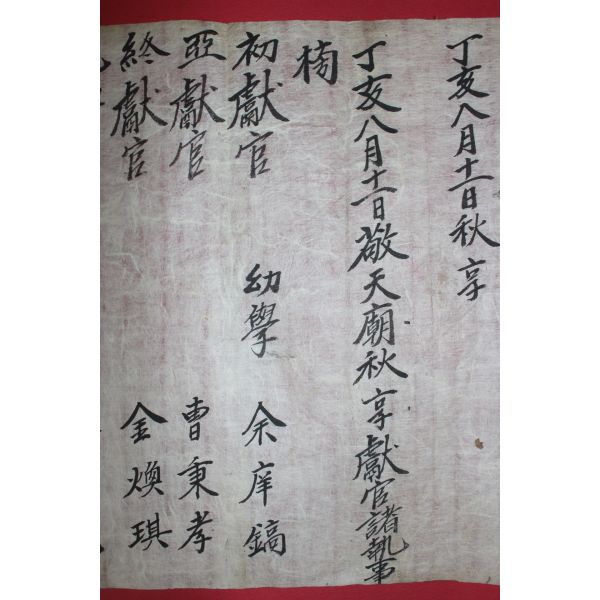 丁亥八月十一日秋享
丁亥八月十一日敬天廟秋享獻官諸執事
初獻官 幼學 余庠鎬
亞獻官 曺秉孝
終獻官 金煥琪